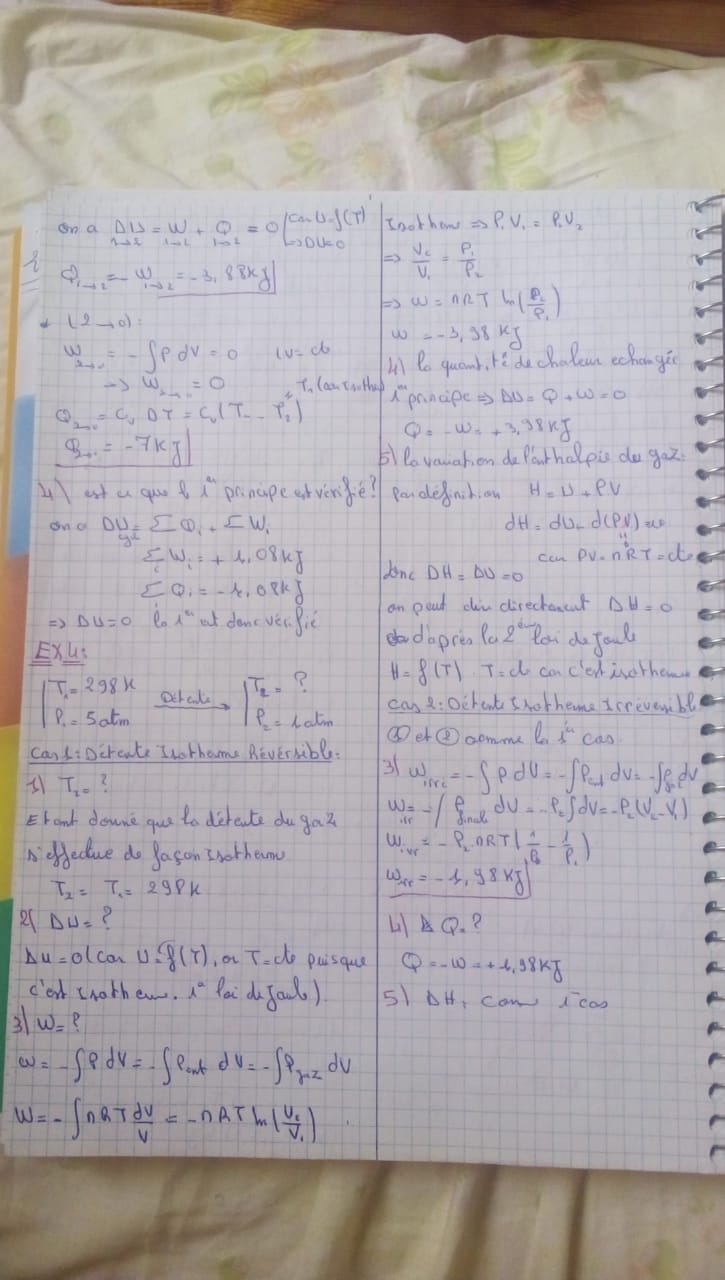 on a ΔU = W + Q = 0 (car U=f(T)
1→2 1→2 1→2 ⇒ DU=0
Q1→2 = - W1→2 = -3,88KJ
* (2→0):
W = - ∫P dV = 0 (V= cte
⇒ W = 0
= T1 (car isotherm)
Q = Cv DT = Cv (T - T2)
Q = -7KJ
4) est ce que le 1er principe est vérifié?
on a DUcycle = Σ Qi + Σ Wi
Σ Wi = + 1,08KJ
Σ Qi = - 1,08KJ
⇒ DU=0 le 1er est donc vérifié
EX4:
T1 = 298K Détente T2 = ?
P1 = 5atm → P2 = 1atm
Cas 1: Détente Isotherme Réversible:
1) T2 = ?
Etant donné que la détente du gaz
s'effectue de façon isotherme
T2 = T1 = 298K
2) ΔU = ?
ΔU = 0 (car U=f(T), or T=cte puisque
c'est isotherme. 1er loi de Joule)
3) W = ?
W = -∫P dV = -∫Pext dV = -∫Pgaz dV
W = -∫nRT dV/V = -nRT ln(V2/V1)
Isotherm ⇒ P1V1 = P2V2
⇒ V2/V1 = P1/P2
⇒ W = nRT ln(P2/P1)
W = -3,98 KJ
4) la quantité de chaleur echangée
1er principe ⇒ DU = Q + W = 0
Q = -W = +3,98KJ
5) la variation de l'enthalpie du gaz:
par définition H = U + P.V
dH = dU + d(PV) = 0
car PV = nRT = cte
donc DH = DU = 0
on peut dire directement ΔH = 0
d'après la 2ème loi de Joule
H = f(T) T = cte car c'est isotherme
Cas 2: Détente Isotherme Irréversible
① et ② comme le 1er cas
3) Wirr = -∫P dV = -∫Pext dV = -∫ dV
Wirr = -∫Pfinale dV = -P2∫dV = -P2(V2-V1)
Wirr = -P2 nRT (1/P2 - 1/P1)
Wirr = -1,98KJ
4) Q = ?
Q = -W = +1,98KJ
5) ΔH, comme 1er cas